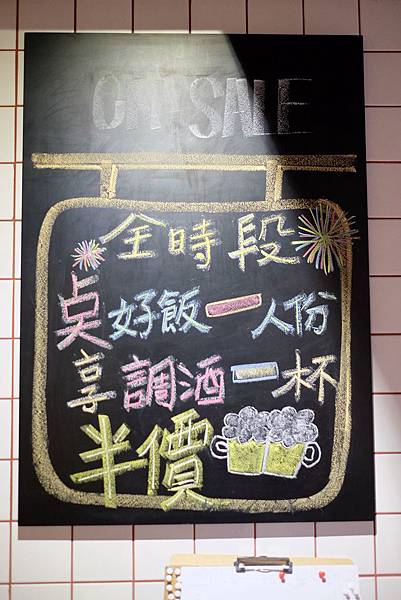 ON SALE
全時段
点好飯一人份
享調酒一杯
半價